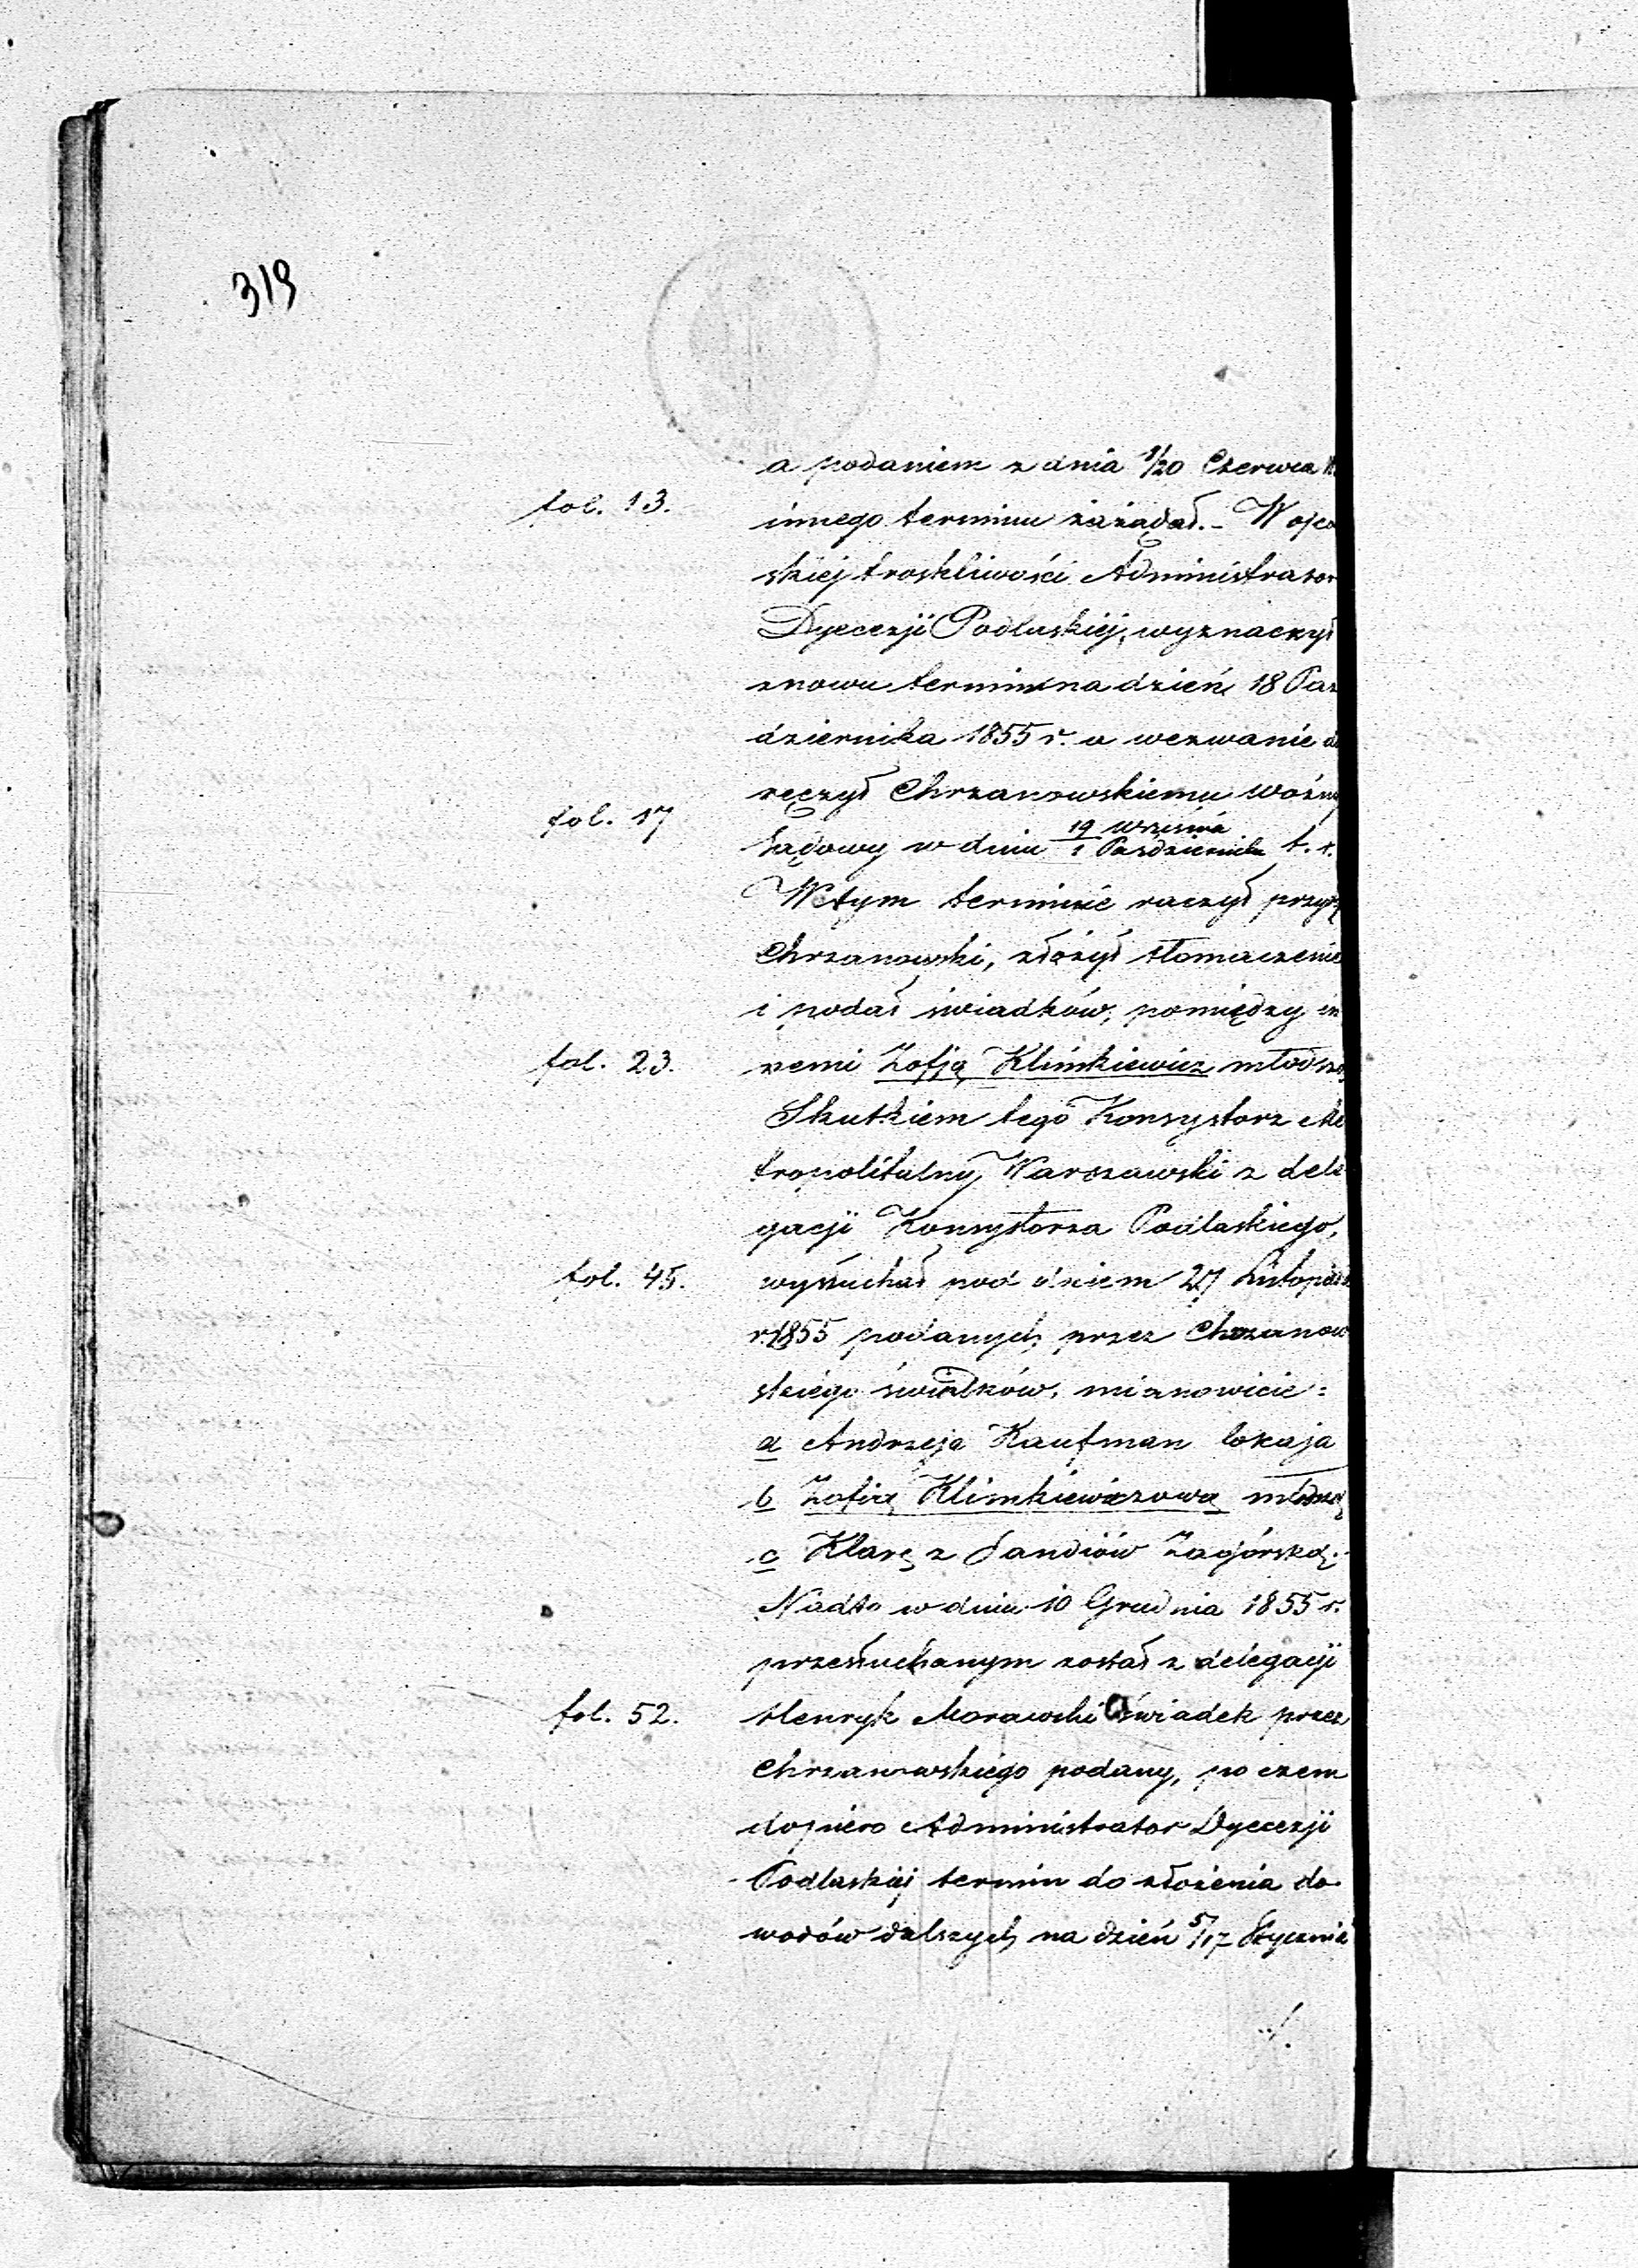 319
a podaniem z dnia 8/20 Czerwca
fol. 13.
innego terminu zażądał. - W ojco
skiej troskliwości Administrator
Dyecezji Podlaskiej, wyznaczył
znowu termin na dzień 18 Paz
dziernika 1855 r. a wezwanie do
ręczył Chrzanowskiemu woźny
fol. 17
Sądowy w dniu 19 Września / 1 Października t. r.
W tym terminie raczył przyjś
Chrzanowski, złożył tłomaczenie
i podał świadków, pomiędzy in
fol. 23.
nemi Zofją Klimkiewicz młodszą
Skutkiem tego Konsystorz Me
tropolitalny Warszawski z dele
gacji Konsystorza Podlaskiego,
fol. 45.
wysłuchał pod dniem 27 Listopada
r. 1855 podanych przez Chrzanow
skiego świadków, mianowicie:
a Andrzeja Kaufman lokaja
b Zofią Klimkiewiczową młodszą
c Klarę z Jandiów Zagórską.
Nadto w dniu 10 Grudnia 1855 r.
przesłuchanym został z delegacji
fol. 52.
Henryk Morawski świadek przez
Chrzanowskiego podany, po czem
dopiero Administrator Dyecezji
Podlaskiej termin do złożenia do
wodów dalszych na dzień 5/17 Stycznia
./.